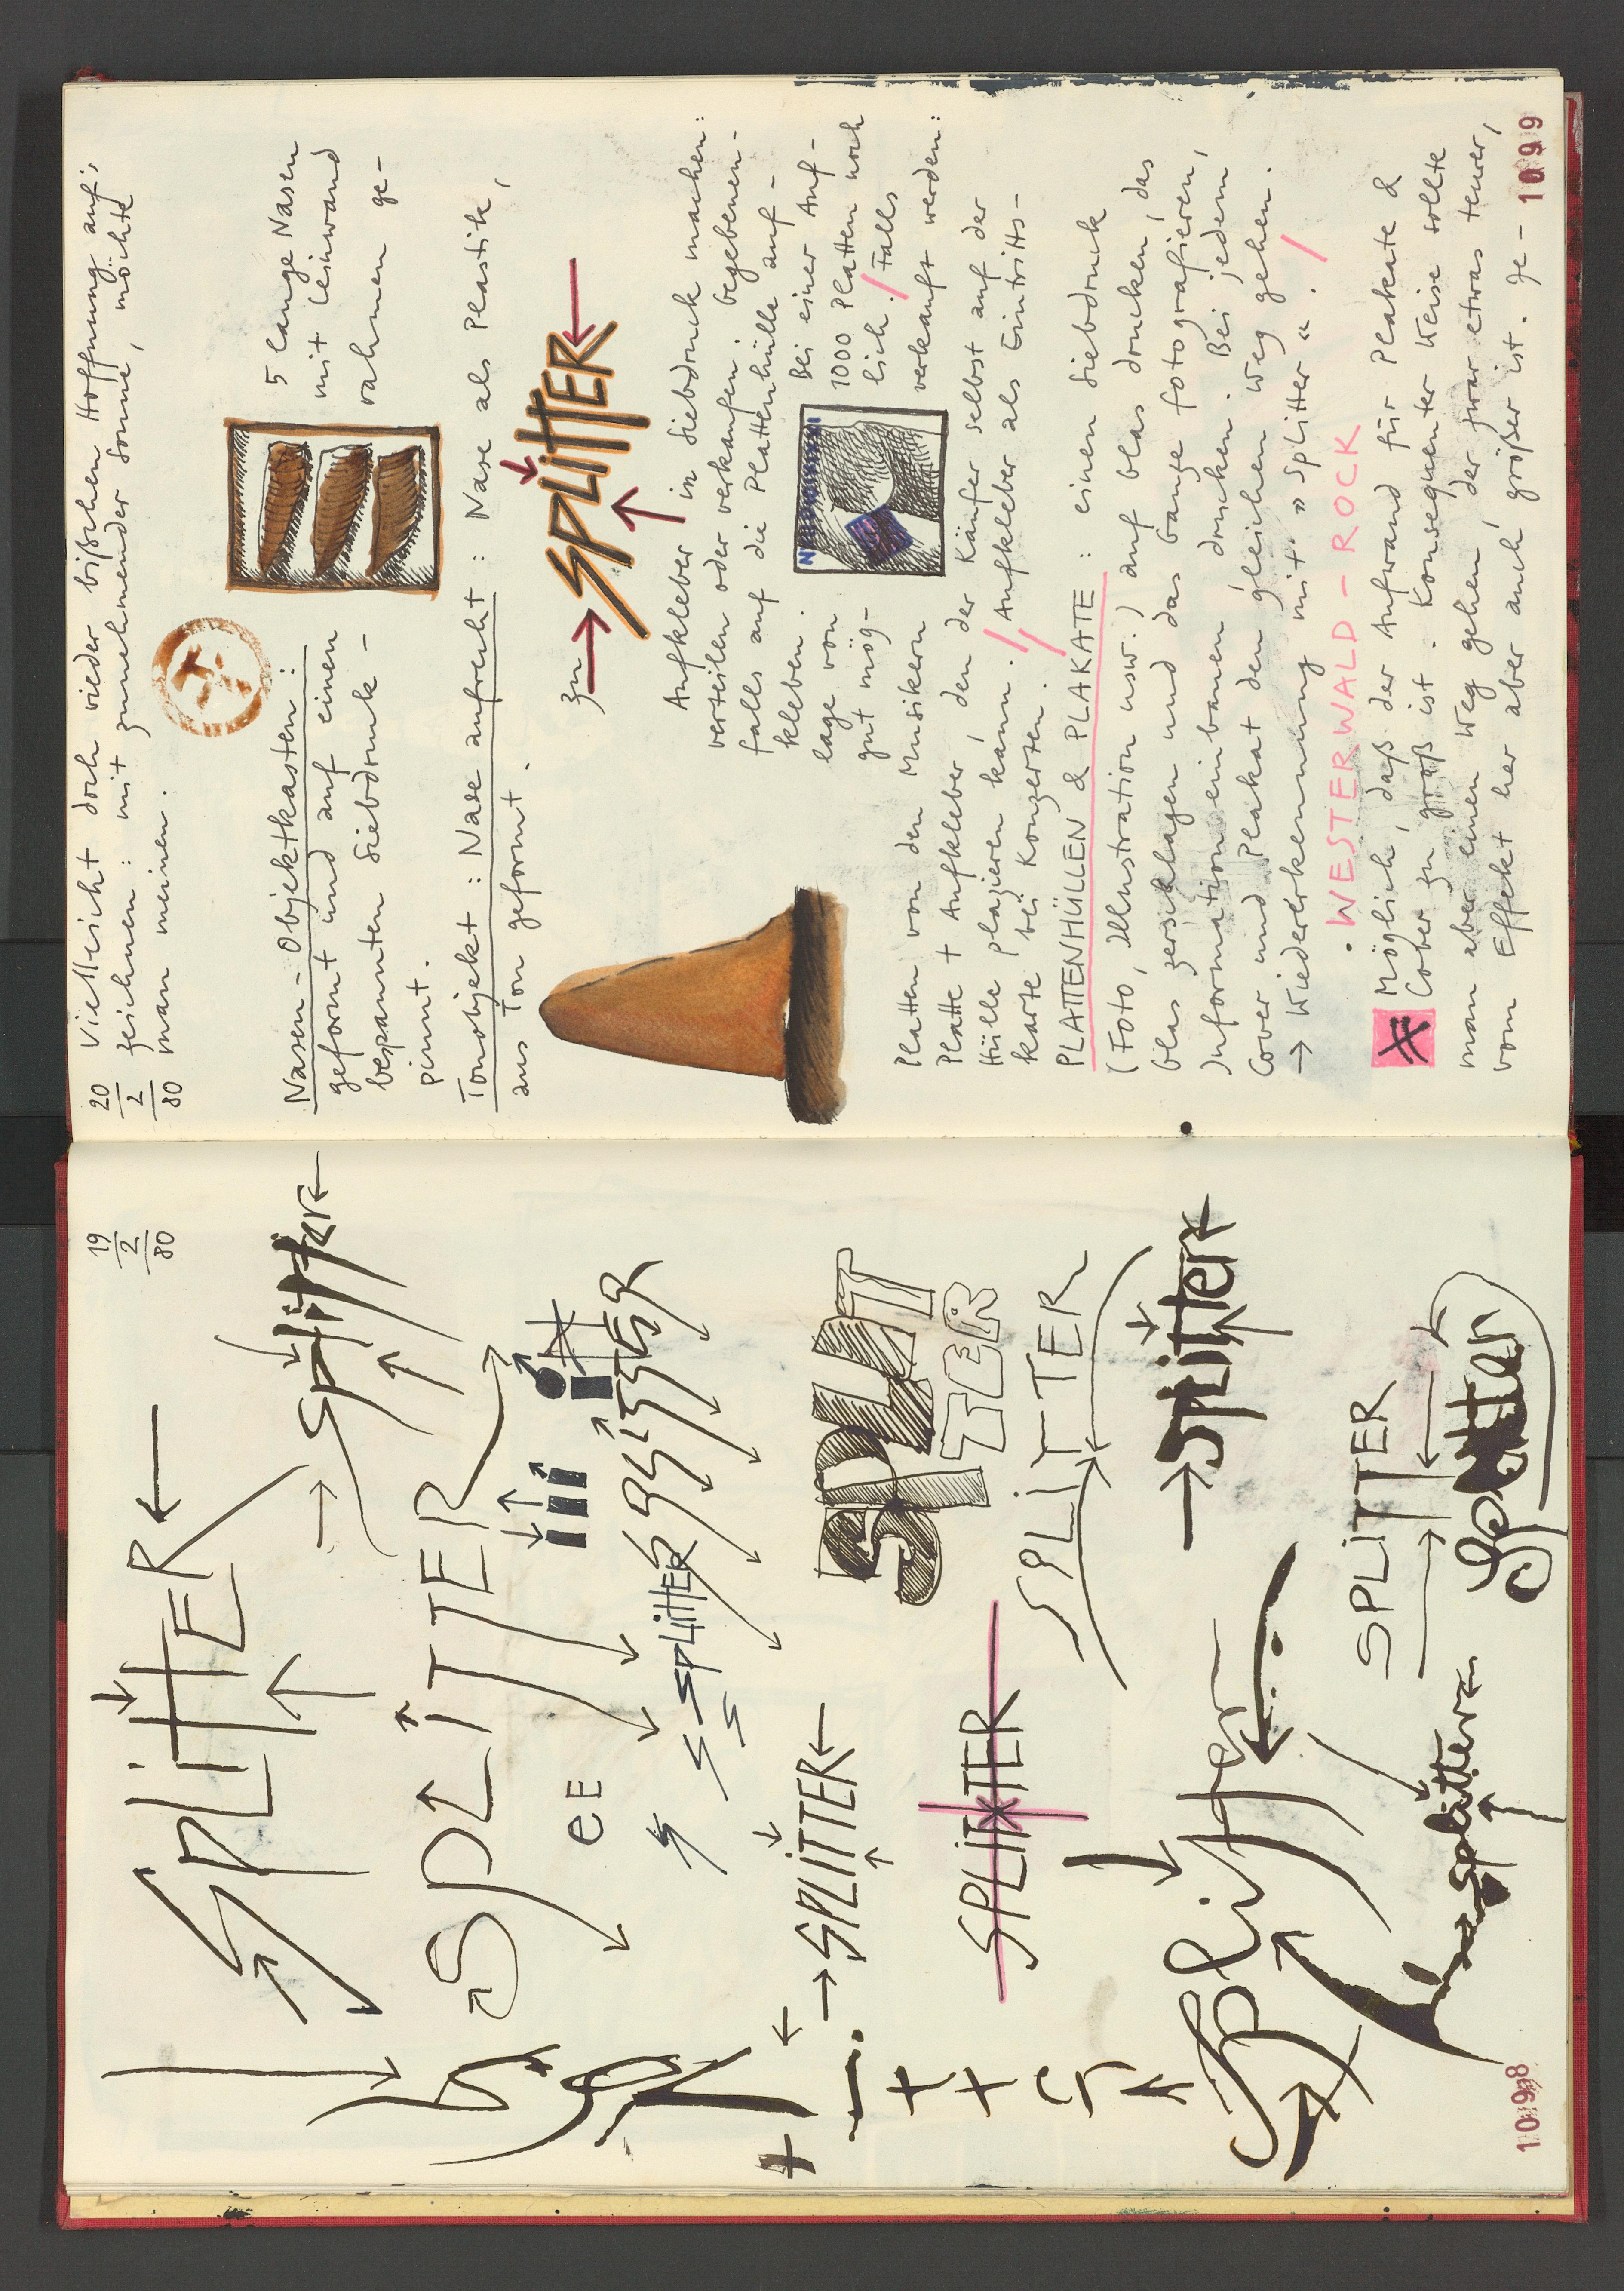 19
2
80
SPLiTTER
Splitter
SPLiTTER
eE
SPLiTTER
SPLiTTER
SPLiTTER
SPLiT
TER
SPLiTTER
SPLiTTER
Splitter
Splitter
SPLiTTER
Splitter
Splitter
1098
20
2
80
Vielleicht doch wieder bißchen Hoffnung auf;
zeichnen: mit zunehmender Sonne, möchte
man meinen.
Nasen-Objektkasten: 5 lange Nasen
geformt und auf einen mit Leinwand
bespannten Siebdruck- rahmen ge-
pinnt.
Tonobjekt: Nase aufrecht: Nase als Plastik,
aus Ton geformt.
Zu SPLiTTER
Aufkleber in Siebdruck machen:
verteilen oder verkaufen. Gegebenen-
falls auf die Plattenhülle auf-
kleben. Bei einer Auf-
lage von 1000 Platten noch
gut mög- lich. / Falls
Platten von den Musikern verkauft werden:
Platte + Aufkleber, den der Käufer selbst auf der
Hülle plazieren kann. // Aufkleber als Eintritts-
karte bei Konzerten.
PLATTENHÜLLEN & PLAKATE: einen Siebdruck
(Foto, Illustration usw.) auf Glas drucken, das
Glas zerschlagen und das Ganze fotografieren,
Information einbauen, drucken. Bei jedem,
Cover und Plakat den gleichen Weg gehen.
→ Wiedererkennung mit "Splitter". /
. WESTERWALD-ROCK
Möglich, daß der Aufwand für Plakate &
Cover zu groß ist. Konsequenter Weise sollte
man aber einen Weg gehen, der zwar etwas teurer,
vom Effekt her aber auch größer ist. Ge-
1099